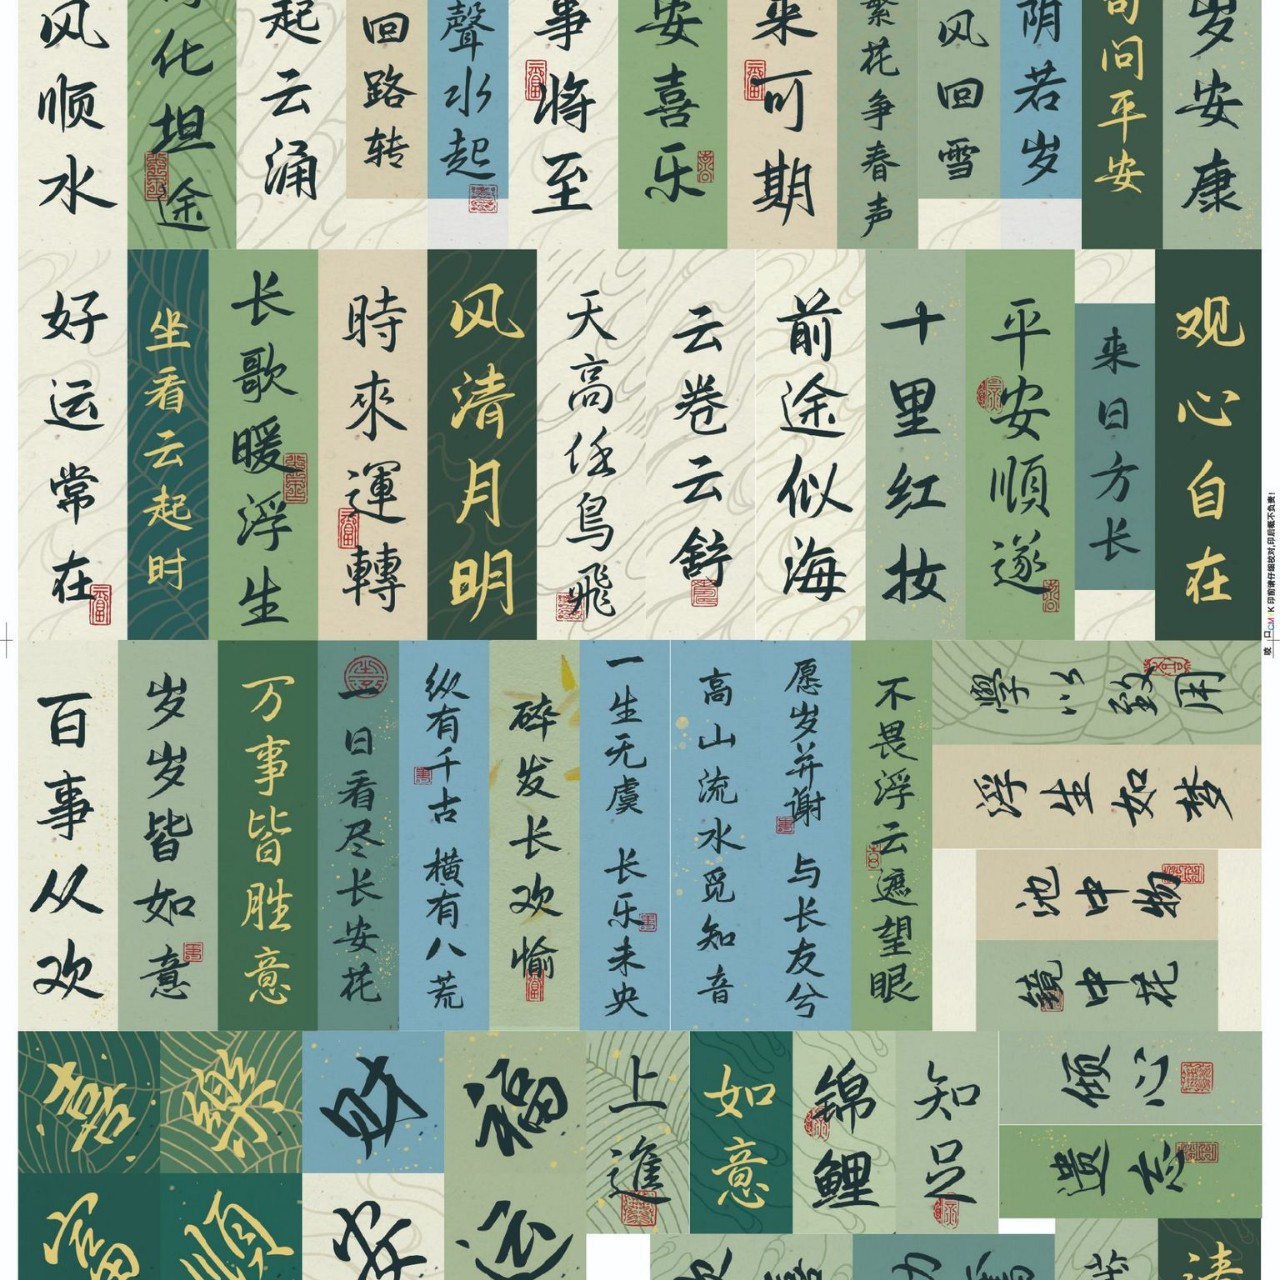 风顺水
化坦途
起云涌
回路转
聲水起
事将至
安喜乐
来可期
繁花争春声
风回雪
阴若岁
问平安
岁安康
好运常在
坐看云起时
长歌暖浮生
時來運轉
风清月明
天高任鸟飛
云卷云舒
前途似海
十里红妆
平安順遂
来日方长
观心自在
印前请仔细校对,印后概不负责!
CMYK
百事从欢
岁岁皆如意
万事皆胜意
一日看尽长安花
纵有千古 横有八荒
碎发长欢愉
一生无虞 长乐未央
高山流水觅知音
愿岁并谢 与长友兮
不畏浮云遮望眼
學以致用
浮生如梦
池中物
镜中花
喜
樂
财
福
上進
如意
锦鲤
知足
倾心
遗忘
富
順
安
运